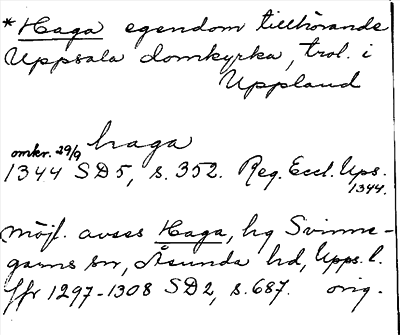 *Haga egendom tillhörande
Uppsala domkyrka, trol. i
Uppland
haga
omkr. 29/9
1344 SD5, s. 352. Reg. Eccl. Ups.
1344.
möjl. avses Haga, hg Svinne-
garns sn, Åsunda hd, Upps. l.
ffr 1297-1308 SD2, s. 687. orig.